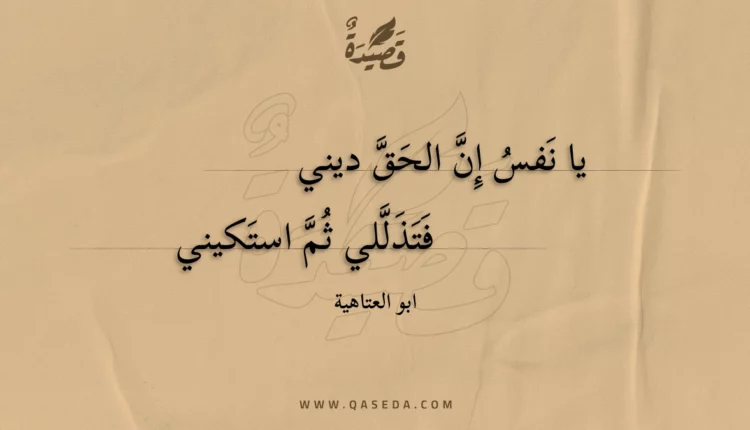 قَصِيدَةٌ
يا نَفسُ إِنَّ الحَقَّ ديني
فَتَذَلَّلي ثُمَّ استَكيني
ابو العتاهية
WWW.QASEDA.COM